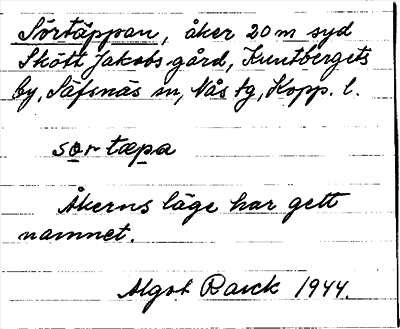 Sörtäppan, åker 20 m syd
Skött Jakobs gård, Kuntbergets
by, Säfsnäs sn, Nås tg, Kopp. l.
sər tæpa
Åkerns läge har gett
namnet.
Algot Raick 1944.